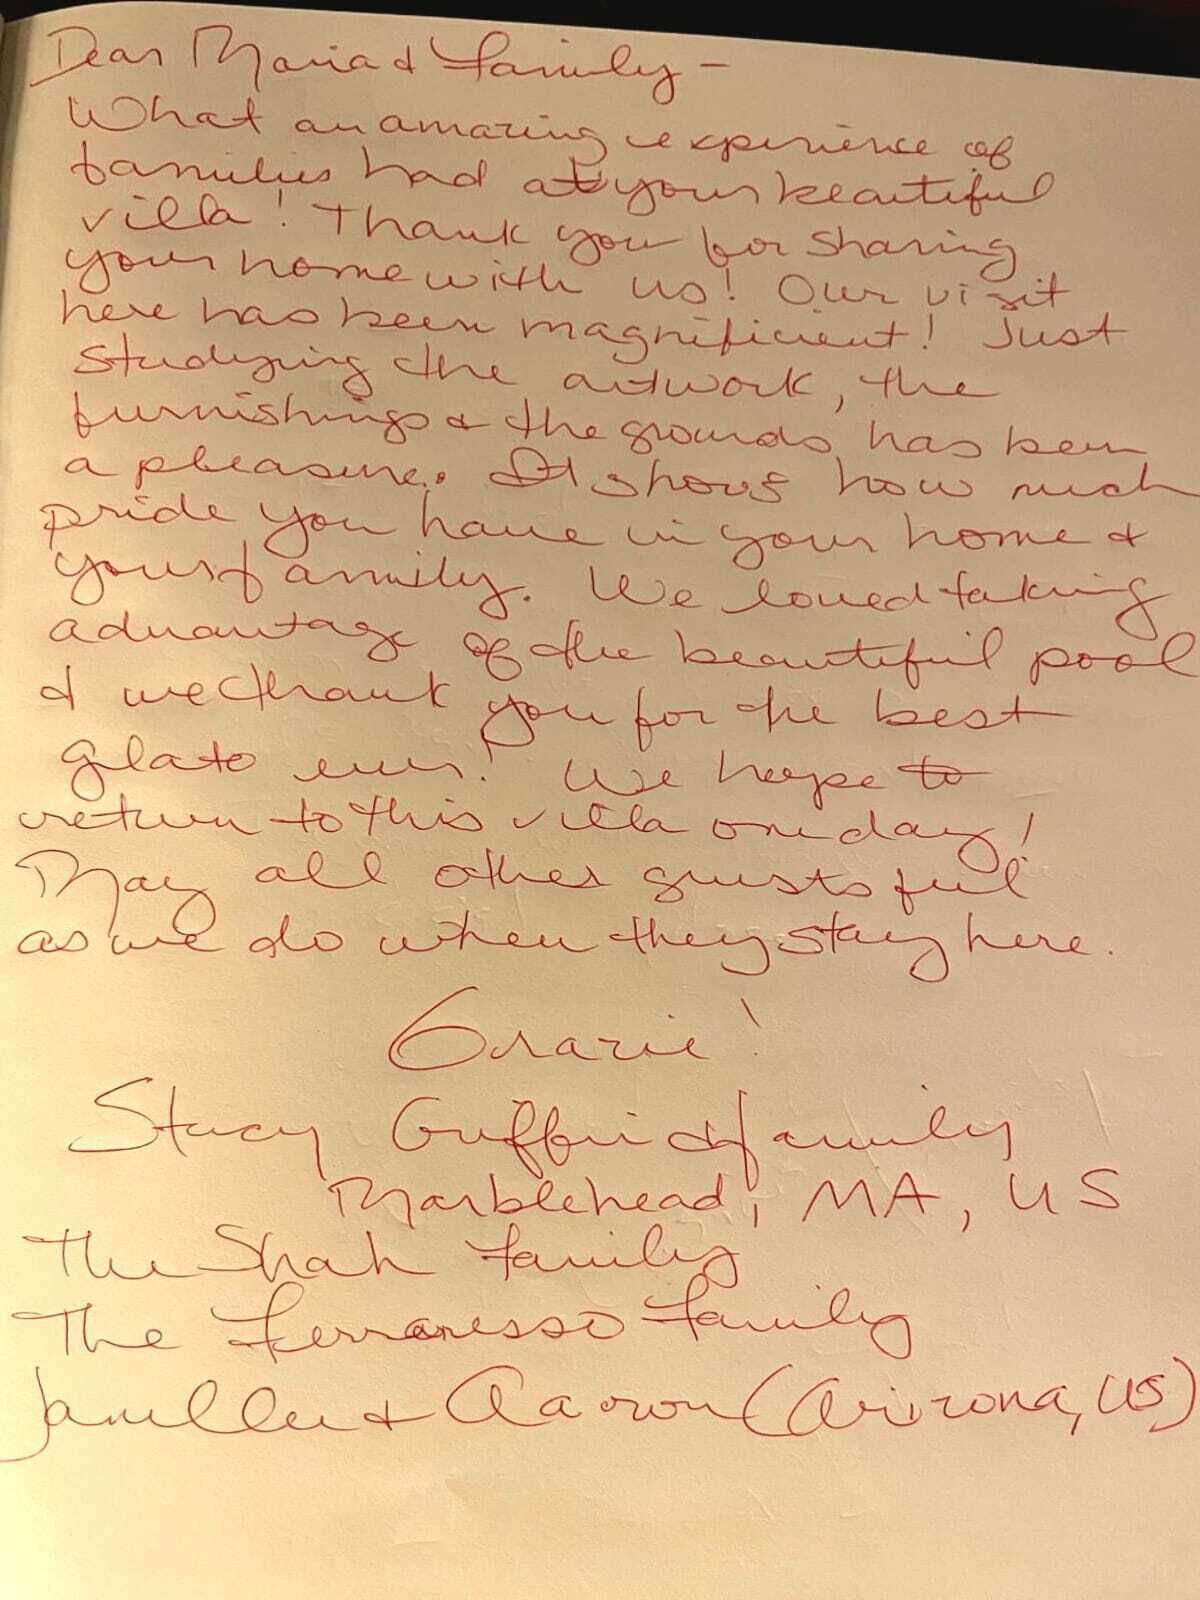 Dear Maria & Family –
What an amazing experience of
families had at your beautiful
villa! Thank you for sharing
your home with us! Our visit
here has been magnificient! Just
studying the artwork, the
furnishings & the grounds has been
a pleasure. It shows how much
pride you have in your home &
your family. We loved taking
advantage of the beautiful pool
& we thank you for the best
gelato ever! We hope to
return to this villa one day!
May all other guests feel
as we do when they stay here.
Grazie!
Stacy Griffin & family
Marblehead, MA, US
The Shah Family
The Ferraresso Family
Janelle & Aaron (Arizona, US)